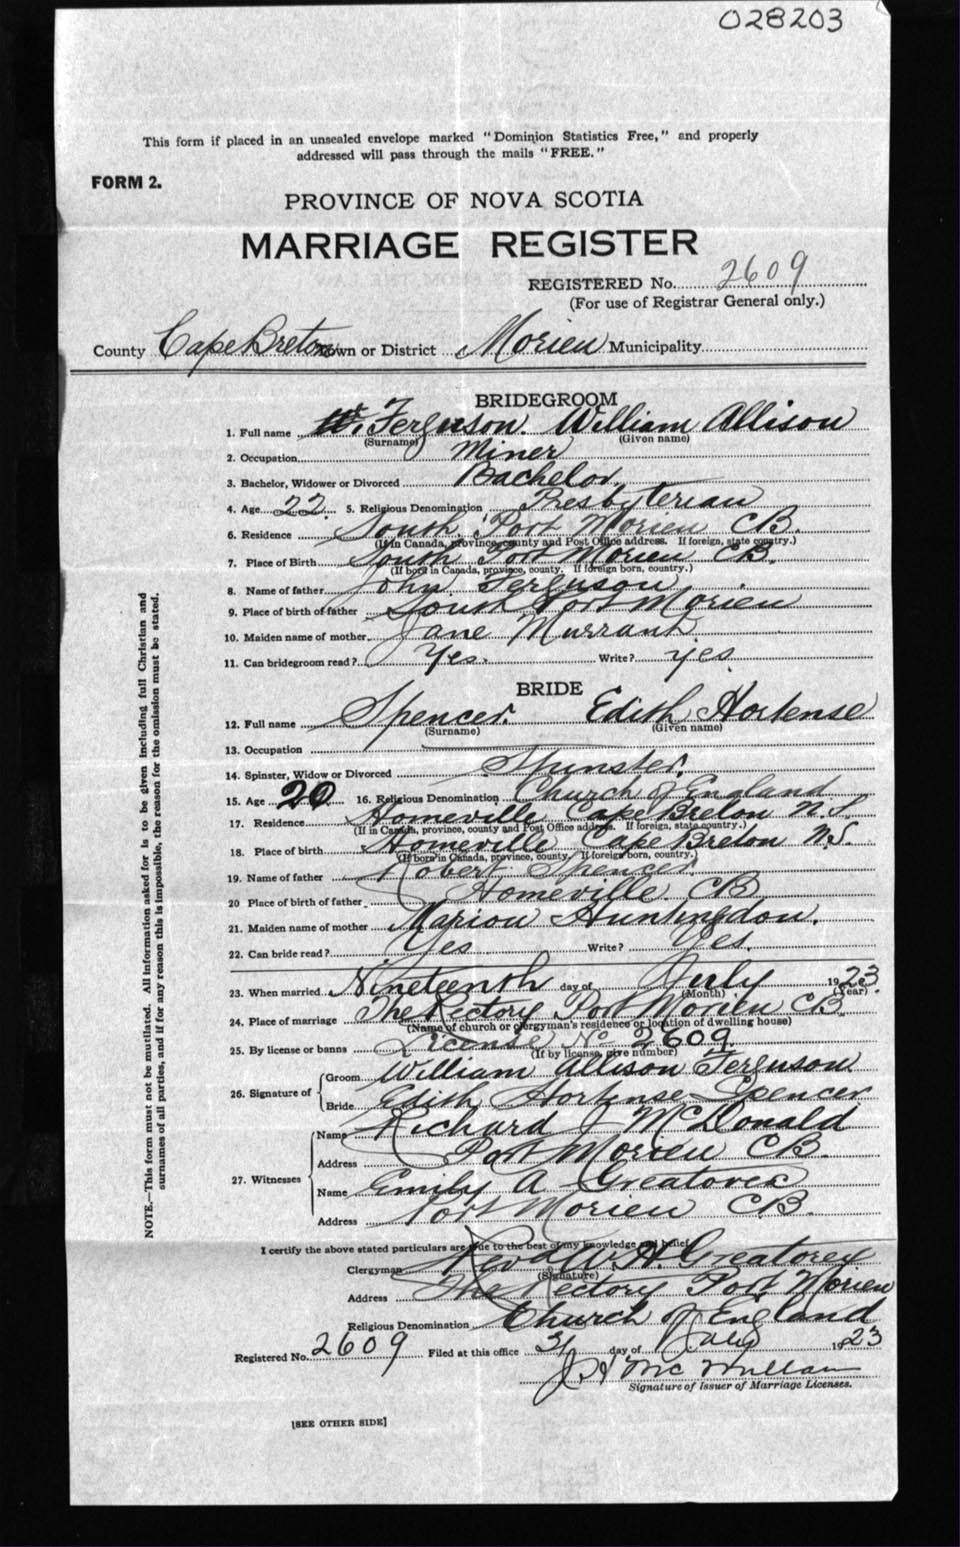 028203
This form if placed in an unsealed envelope marked "Dominion Statistics Free," and properly
addressed will pass through the mails "FREE."
FORM 2.
PROVINCE OF NOVA SCOTIA
MARRIAGE REGISTER
REGISTERED No. 2609
(For use of Registrar General only.)
County Cape Breton Town or District Morien Municipality
BRIDEGROOM
1. Full name Ferguson. William Allison
(Surname) (Given name)
2. Occupation Miner
3. Bachelor, Widower or Divorced Bachelor.
4. Age 22. 5. Religious Denomination Presbyterian
6. Residence South Port Morien CB.
(If in Canada, province, county and Post Office address. If foreign, state country.)
7. Place of Birth South Port Morien CB.
(If born in Canada, province, county. If foreign born, country.)
8. Name of father John Ferguson
9. Place of birth of father South Port Morien
10. Maiden name of mother Jane Murrant.
11. Can bridegroom read? Yes. Write? yes.
BRIDE
12. Full name Spencer. Edith Hortense
(Surname) (Given name)
13. Occupation
14. Spinster, Widow or Divorced Spinster.
15. Age 20 16. Religious Denomination Church of England
17. Residence Homeville Cape Breton N.S.
(If in Canada, province, county and Post Office address. If foreign, state country.)
18. Place of birth Homeville Cape Breton N.S.
(If born in Canada, province, county. If foreign born, country.)
19. Name of father Robert Spencer.
20 Place of birth of father Homeville. CB
21. Maiden name of mother Marion Huntingdon.
22. Can bride read? Yes Write? Yes.
23. When married Nineteenth day of July 1923.
(Month) (Year)
24. Place of marriage The Rectory Port Morien CB
(Name of church or clergyman's residence or location of dwelling house)
25. By license or banns License No 2609.
(If by license, give number)
26. Signature of Groom William Allison Ferguson
Bride Edith Hortense Spencer
27. Witnesses Name Richard J McDonald
Address Port Morien CB.
Name Emily A Greatorex
Address Port Morien CB.
I certify the above stated particulars are true to the best of my knowledge and belief
Clergyman Revd W. H. Greatorex
(Signature)
Address The Rectory Port Morien
Religious Denomination Church of England
Registered No. 2609 Filed at this office 31 day of July 1923
J A McMullan
Signature of Issuer of Marriage Licenses.
[SEE OTHER SIDE]
NOTE.—This form must not be mutilated. All information asked for is to be given including full Christian and
surnames of all parties, and if for any reason this is impossible, the reason for the omission must be stated.